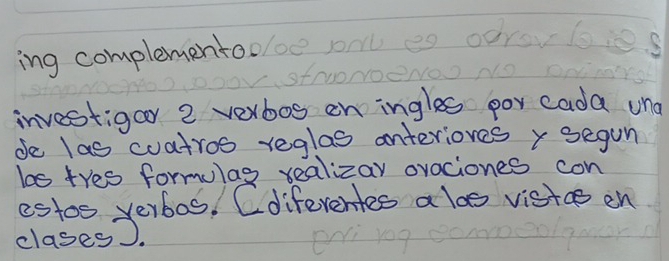 ing complemento.
investigar 2 verbos en ingles por cada una
de las cuatros reglas anteriores y segun
las tres formulas realizar oraciones con
estos verbos. (diferentes a las vistas en
clases).